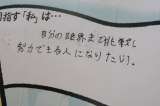 指す「私」は…
自分の限界まで挑戦し
努力できる人になりたい!